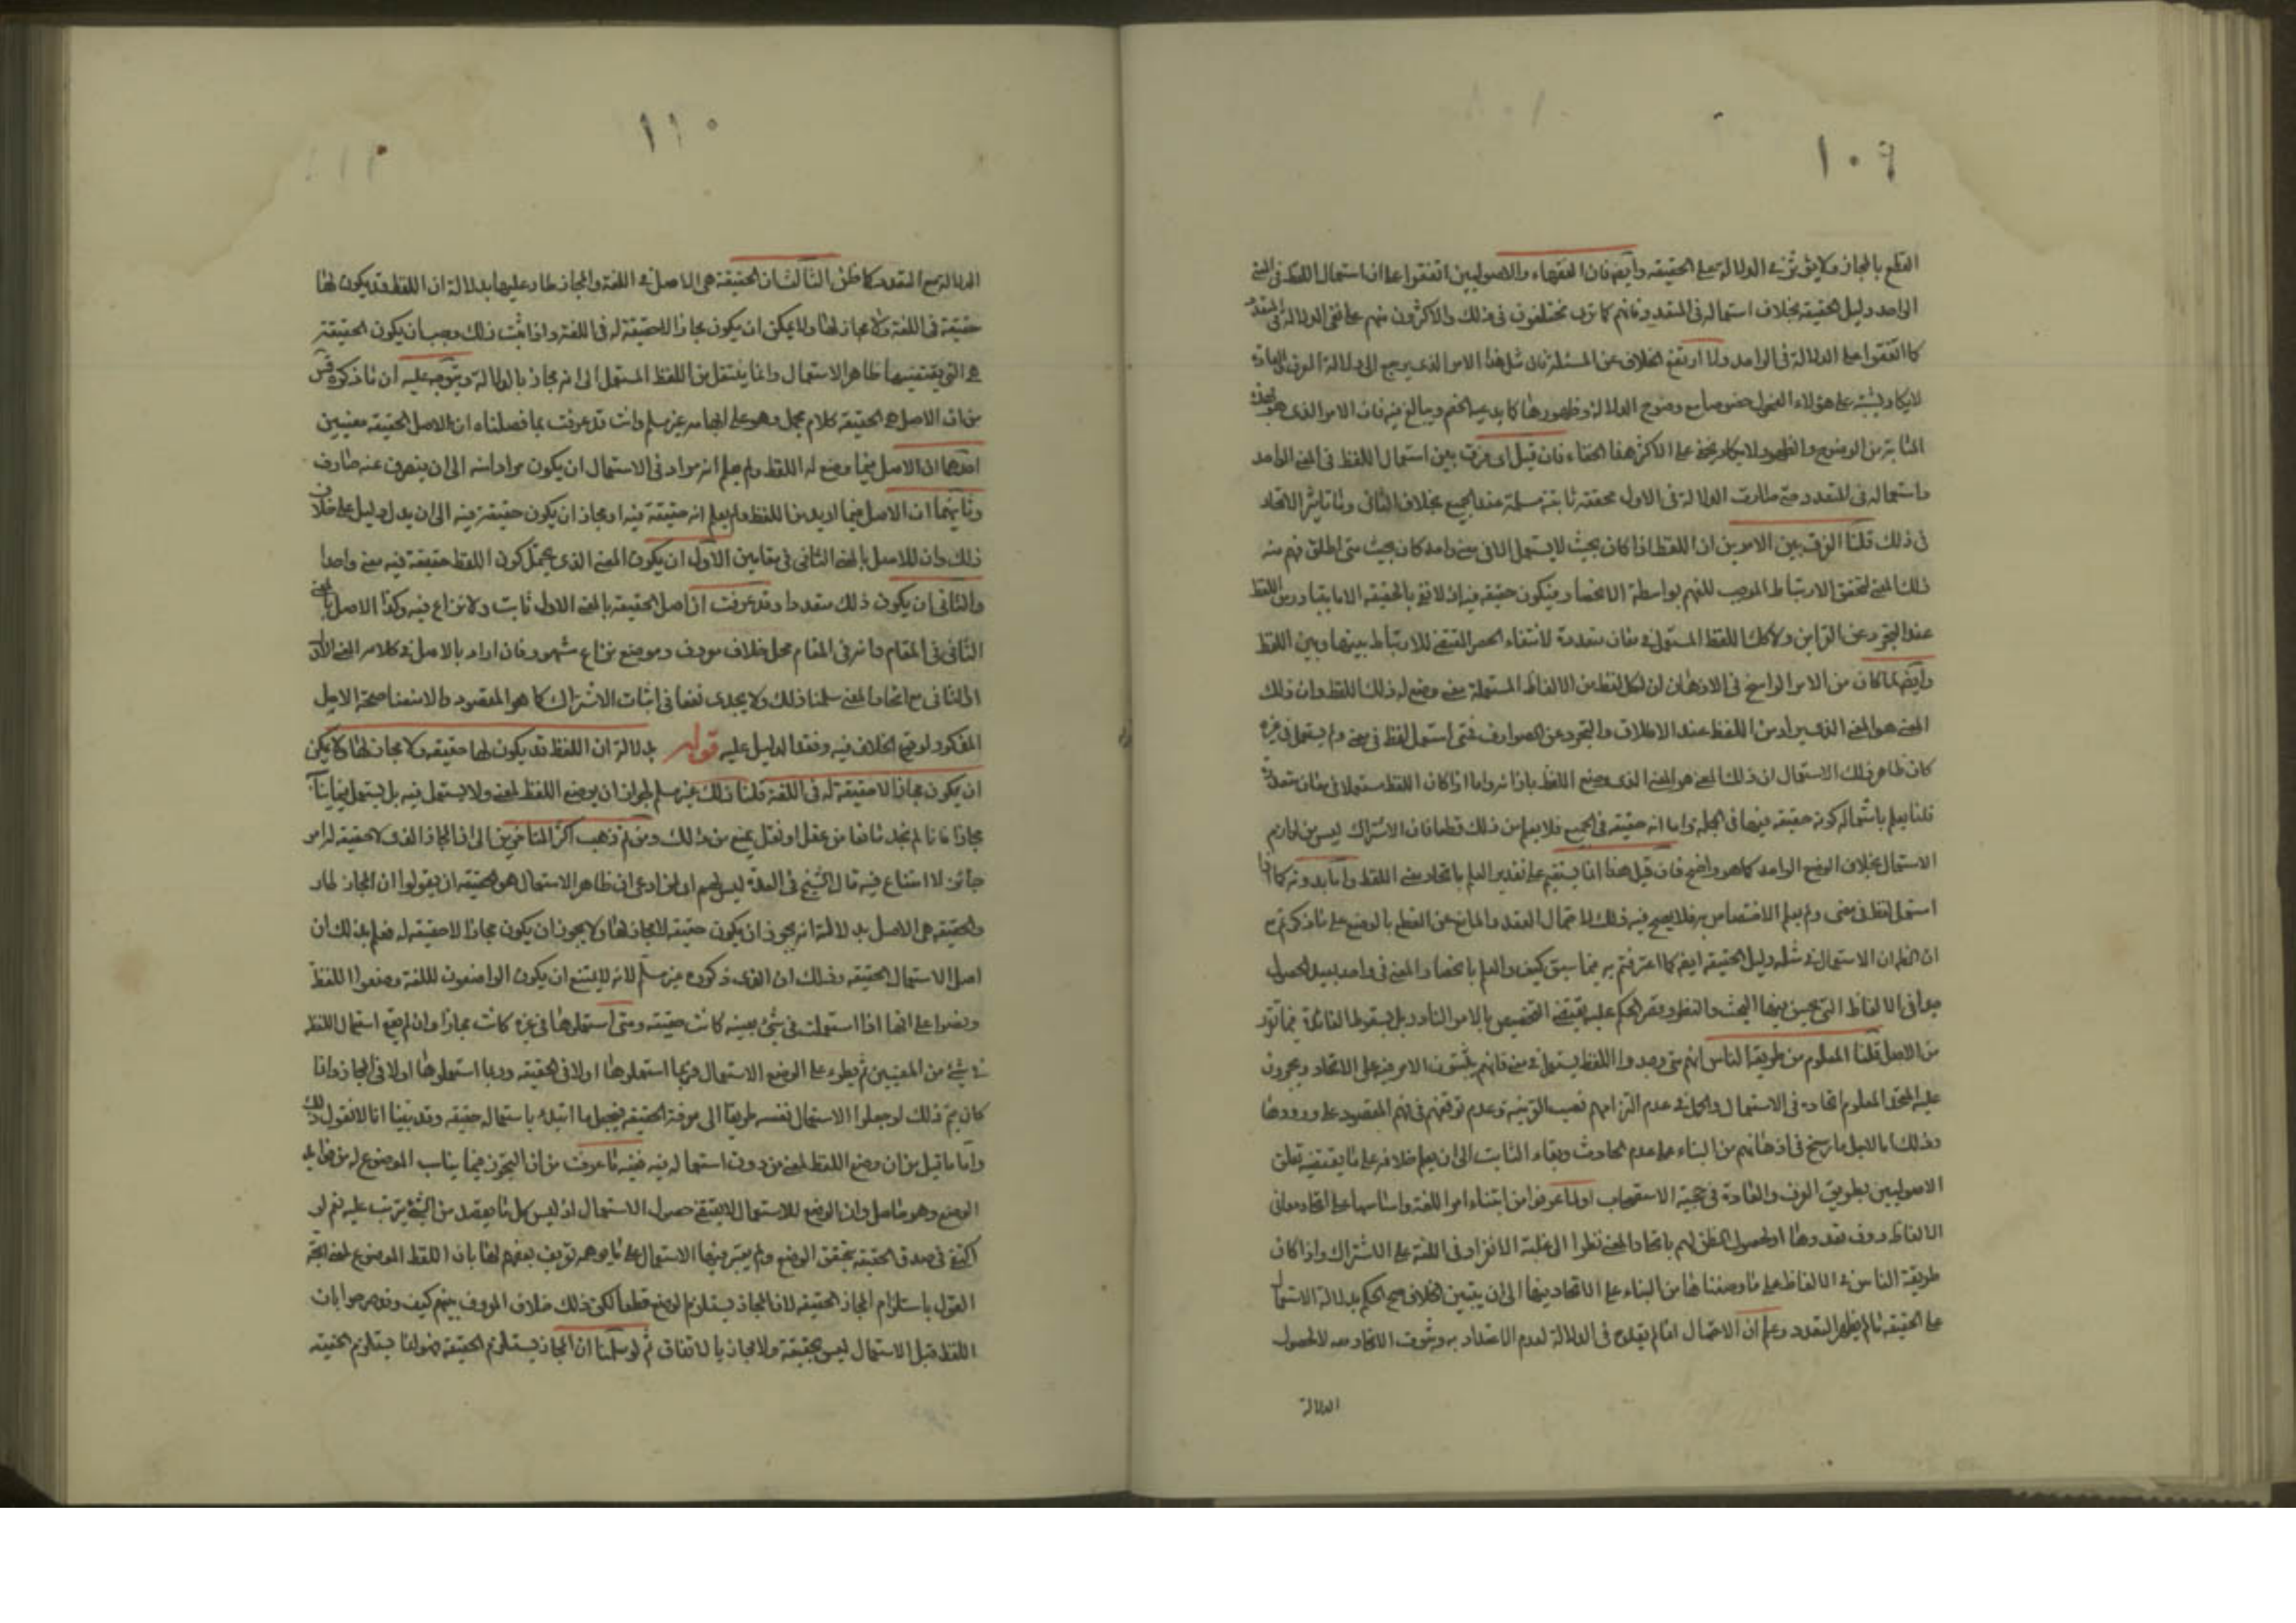 ١٠٩
القطع بالمجاز ولا يؤثر في الدلالة على الحقيقة وأيضا فان الفقهاء والاصوليين اتفقوا على ان استعمال اللفظ في المعنى
الواحد دليل الحقيقة بخلاف استعماله في المتعدد فانهم كما ترى مختلفون في ذلك والاكثرون منهم على نفي الدلالة في المتعدد
كما اتفقوا على الدلالة في الواحد ولما ارتفع الخلاف عن المسئلة فان مثل هذا الامر الذي يرجع الى دلالة العرف والعادة
لا يكاد يشتبه على هؤلاء الفحول خصوصا مع وضوح الدلالة وظهورها كما يدعيه الخصم ويبالغ فيه فان الامر الذي هو بهذه
المثابة من الوضوح والظهور لا يكاد يخفى على الاكثر هذا الخفاء فان قيل اى فرق بين استعمال اللفظ في المعنى الواحد
واستعماله في المتعدد حتى صارت الدلالة في الاول محققة ثابتة مسلمة عند الجميع بخلاف الثاني وما تاثير الاتحاد
في ذلك قلنا الفرق بين الامرين ان اللفظ اذا كان بحيث لا يستعمل الا في معنى واحد كان بحيث متى اطلق فهم منه
ذلك المعنى لتحقق الارتباط الموجب للفهم بواسطة الانحصار فيكون حقيقة فيه اذ لا نعنى بالحقيقة الا ما يتبادر من اللفظ
عند التجرد عن القراين ولا كك اللفظ المستعمل في معان متعددة لانتفاء الحصر المقتضى للارتباط بينها وبين اللفظ
وأيضا لما كان من الامر الراسخ في الاذهان ان لكل لفظ من الالفاظ المستعملة معنى وضع له ذلك اللفظ وان ذلك
المعنى هو المعنى الذي يراد من اللفظ عند الاطلاق والتجرد عن الصوارف فمتى استعمل لفظ في معنى ولم يستعمل في غيره
كان ظاهر ذلك الاستعمال ان ذلك المعنى هو المعنى الذي وضع اللفظ بازائه واما اذا كان اللفظ مستعملا في معان متعددة
فلنا يعلم باستعماله كونه حقيقة فيها في الجملة واما انه حقيقة في الجميع فلا يعلم من ذلك قطعا فان الاشتراك ليس من لوازم
الاستعمال بخلاف الوضع الواحد كما هو واضح فان قيل هذا انما يستقيم على تقدير العلم باتحاد معنى اللفظ واما بدونه كما اذا
استعمل لفظ في معنى ولم يعلم الاختصاص به فلا يصح فيه ذلك لاحتمال التعدد والمانع عن القطع بالوضع على ما ذكرتم مع
ان الظ ان الاستعمال في مثله دليل الحقيقة ايضا كما اعترفتم به فيما سبق كيف والعلم بانحصار المعنى في واحد بعيد الحصول
في الالفاظ التي يحسن فيها البحث والنظر وقصر الحكم عليه يقتضى التخصيص بالامر النادر بل يسقط الفائدة فيما تقرر
من الاصل قلنا المعلوم من طريقة الناس انهم متى وجدوا اللفظ يستعمل في معنى فانهم يثبتون الامر فيه على الاتحاد ويجرون
عليه المحقق المعلوم اتحاده في الاستعمال والحمل وعدم التزامهم نصب القرينة وعدم توقفهم في فهم المقصود على ورودها
وذلك بالدليل ما رسخ في اذهانهم من البناء على عدم الحادث وبقاء الثابت الى ان يعلم خلافه على ما يقتضيه تعلق
الاصوليين بطريق العرف والعادة في حجية الاستصحاب او لما عرفوا من ابتناء امر اللغة واساسها على اتحاد معانى
الالفاظ دون تعددها او لحصول الظن لهم باتحاد المعنى نظرا الى غلبة الانفراد في اللغة على الاشتراك واذا كان
طريقة الناس في الالفاظ على ما وصفناها من البناء على الاتحاد فيها الى ان يتبين الخلاف صح الحكم بدلالة الاستعمال
على الحقيقة ما لم يظهر التعدد وعلم ان الاحتمال انما لم يقدح في الدلالة لعدم الاعتداد به وثبوت الاتحاد معه لا لحصول
الدلالة
١١٠
الدلالة مع التعدد كما ظن الثالث ان الحقيقة هى الاصل في اللغة والمجاز طار عليها بدلالة ان اللفظ قد يكون لها
حقيقة في اللغة ولا مجاز لها ولا يمكن ان يكون مجاز لا حقيقة له في اللغة واذا ثبت ذلك وجب ان يكون الحقيقة
هى التي يقتضيها ظاهر الاستعمال وانما ينتقل من اللفظ المستعمل الى انه مجاز بالدلالة ويتوجه عليه ان ما ذكره
من ان الاصل هى الحقيقة كلام مجمل وهو على ابهامه غير مسلم وانت قد عرفت بما فصلناه ان لاصل الحقيقة معنيين
احدهما ان الاصل فيما وضع له اللفظ ولم يعلم انه مراد في الاستعمال ان يكون مرادا منه الى ان يصرف عنه صارف
وثانيهما ان الاصل فيما اريد من اللفظ ولم يعلم انه حقيقة فيه او مجاز ان يكون حقيقة فيه الى ان يدل دليل على خلاف
ذلك وان للاصل بالمعنى الثاني في مقامين الاول ان يكون المعنى الذي يحتمل كون اللفظ حقيقة فيه معنى واحدا
والثاني ان يكون ذلك متعددا وقد عرفت ان اصل الحقيقة بالمعنى الاول ثابت ولا نزاع فيه وكذا الاصل بالمعنى
الثاني في المقام وانه في المقام محل خلاف معروف وموضع نزاع مشهور فان اراد بالاصل في كلامه المعنى الاول
او الثاني مع اتحاد المعنى سلمنا ذلك ولا يجدى نفعا في اثبات الاشتراك كما هو المقصود والا منعنا صحة الاصل
المذكور لوقوع الخلاف فيه وفقد الدليل عليه قوله بدلالة ان اللفظ قد يكون لها حقيقة ولا مجاز لها ولا يمكن
ان يكون مجاز لا حقيقة له في اللغة قلنا ذلك غير مسلم لجواز ان يوضع اللفظ لمعنى ولا يستعمل فيه بل يستعمل فيما يناسبه
مجازا فانا لم نجد مانعا من عقل او نقل يمنع من ذلك ومن ثم ذهب اكثر المتأخرين الى ان المجاز الذي لا حقيقة له امر
جائز لا امتناع فيه قال الشيخ في العدة ليس لهم اى لمن ادعى ان ظاهر الاستعمال هو الحقيقة ان يقولوا ان المجاز طار
والحقيقة هى الاصل بدلالة انه يجوز ان يكون حقيقة لا مجاز لها ولا يجوز ان يكون مجاز لا حقيقة له فعلم بذلك ان
اصل الاستعمال الحقيقة وذلك ان الذي ذكروه غير مسلم لانه لا يمتنع ان يكون الواضعون للغة وضعوا اللفظ
ونصوا على انها اذا استعملت في شئ بعينه كانت حقيقة ومتى استعملوها في غيره كانت مجازا وان لم يقع استعمال اللفظ
في شئ من المعنيين ثم يطرء على الوضع الاستعمال فربما استعملوها اولا في الحقيقة وربما استعملوها اولا في المجاز وانما
كان يتم ذلك لو جعلوا الاستعمال نفسه طريقا الى معرفة الحقيقة فيجعل ما ابتدء باستعماله حقيقة وقد بينا انا لا نقول ذلك
واما ما قيل من ان وضع اللفظ لمعنى من دون استعماله فيه ففيه ما عرفت من ان التجوز فيما يناسب الموضوع له من
الوضع وهو حاصل وان الوضع للاستعمال لا يقتضى حصول الاستعمال اذ ليس كل ما يقصد من الشئ يترتب عليه نعم لو
اكتفى في صدق الحقيقة بتحقق الوضع ولم يعتبر فيها الاستعمال على ما يوهمه تعريف بعضهم لها بان اللفظ الموضوع لمعنى اتجه
القول باستلزام المجاز الحقيقة لان المجاز يستلزم الوضع قطعا لكن ذلك خلاف المعروف بينهم كيف وقد صرحوا بان
اللفظ قبل الاستعمال ليس بحقيقة ولا مجاز بالاتفاق ثم لو سلمنا ان المجاز يستلزم الحقيقة فقولنا يستلزم الحقيقة